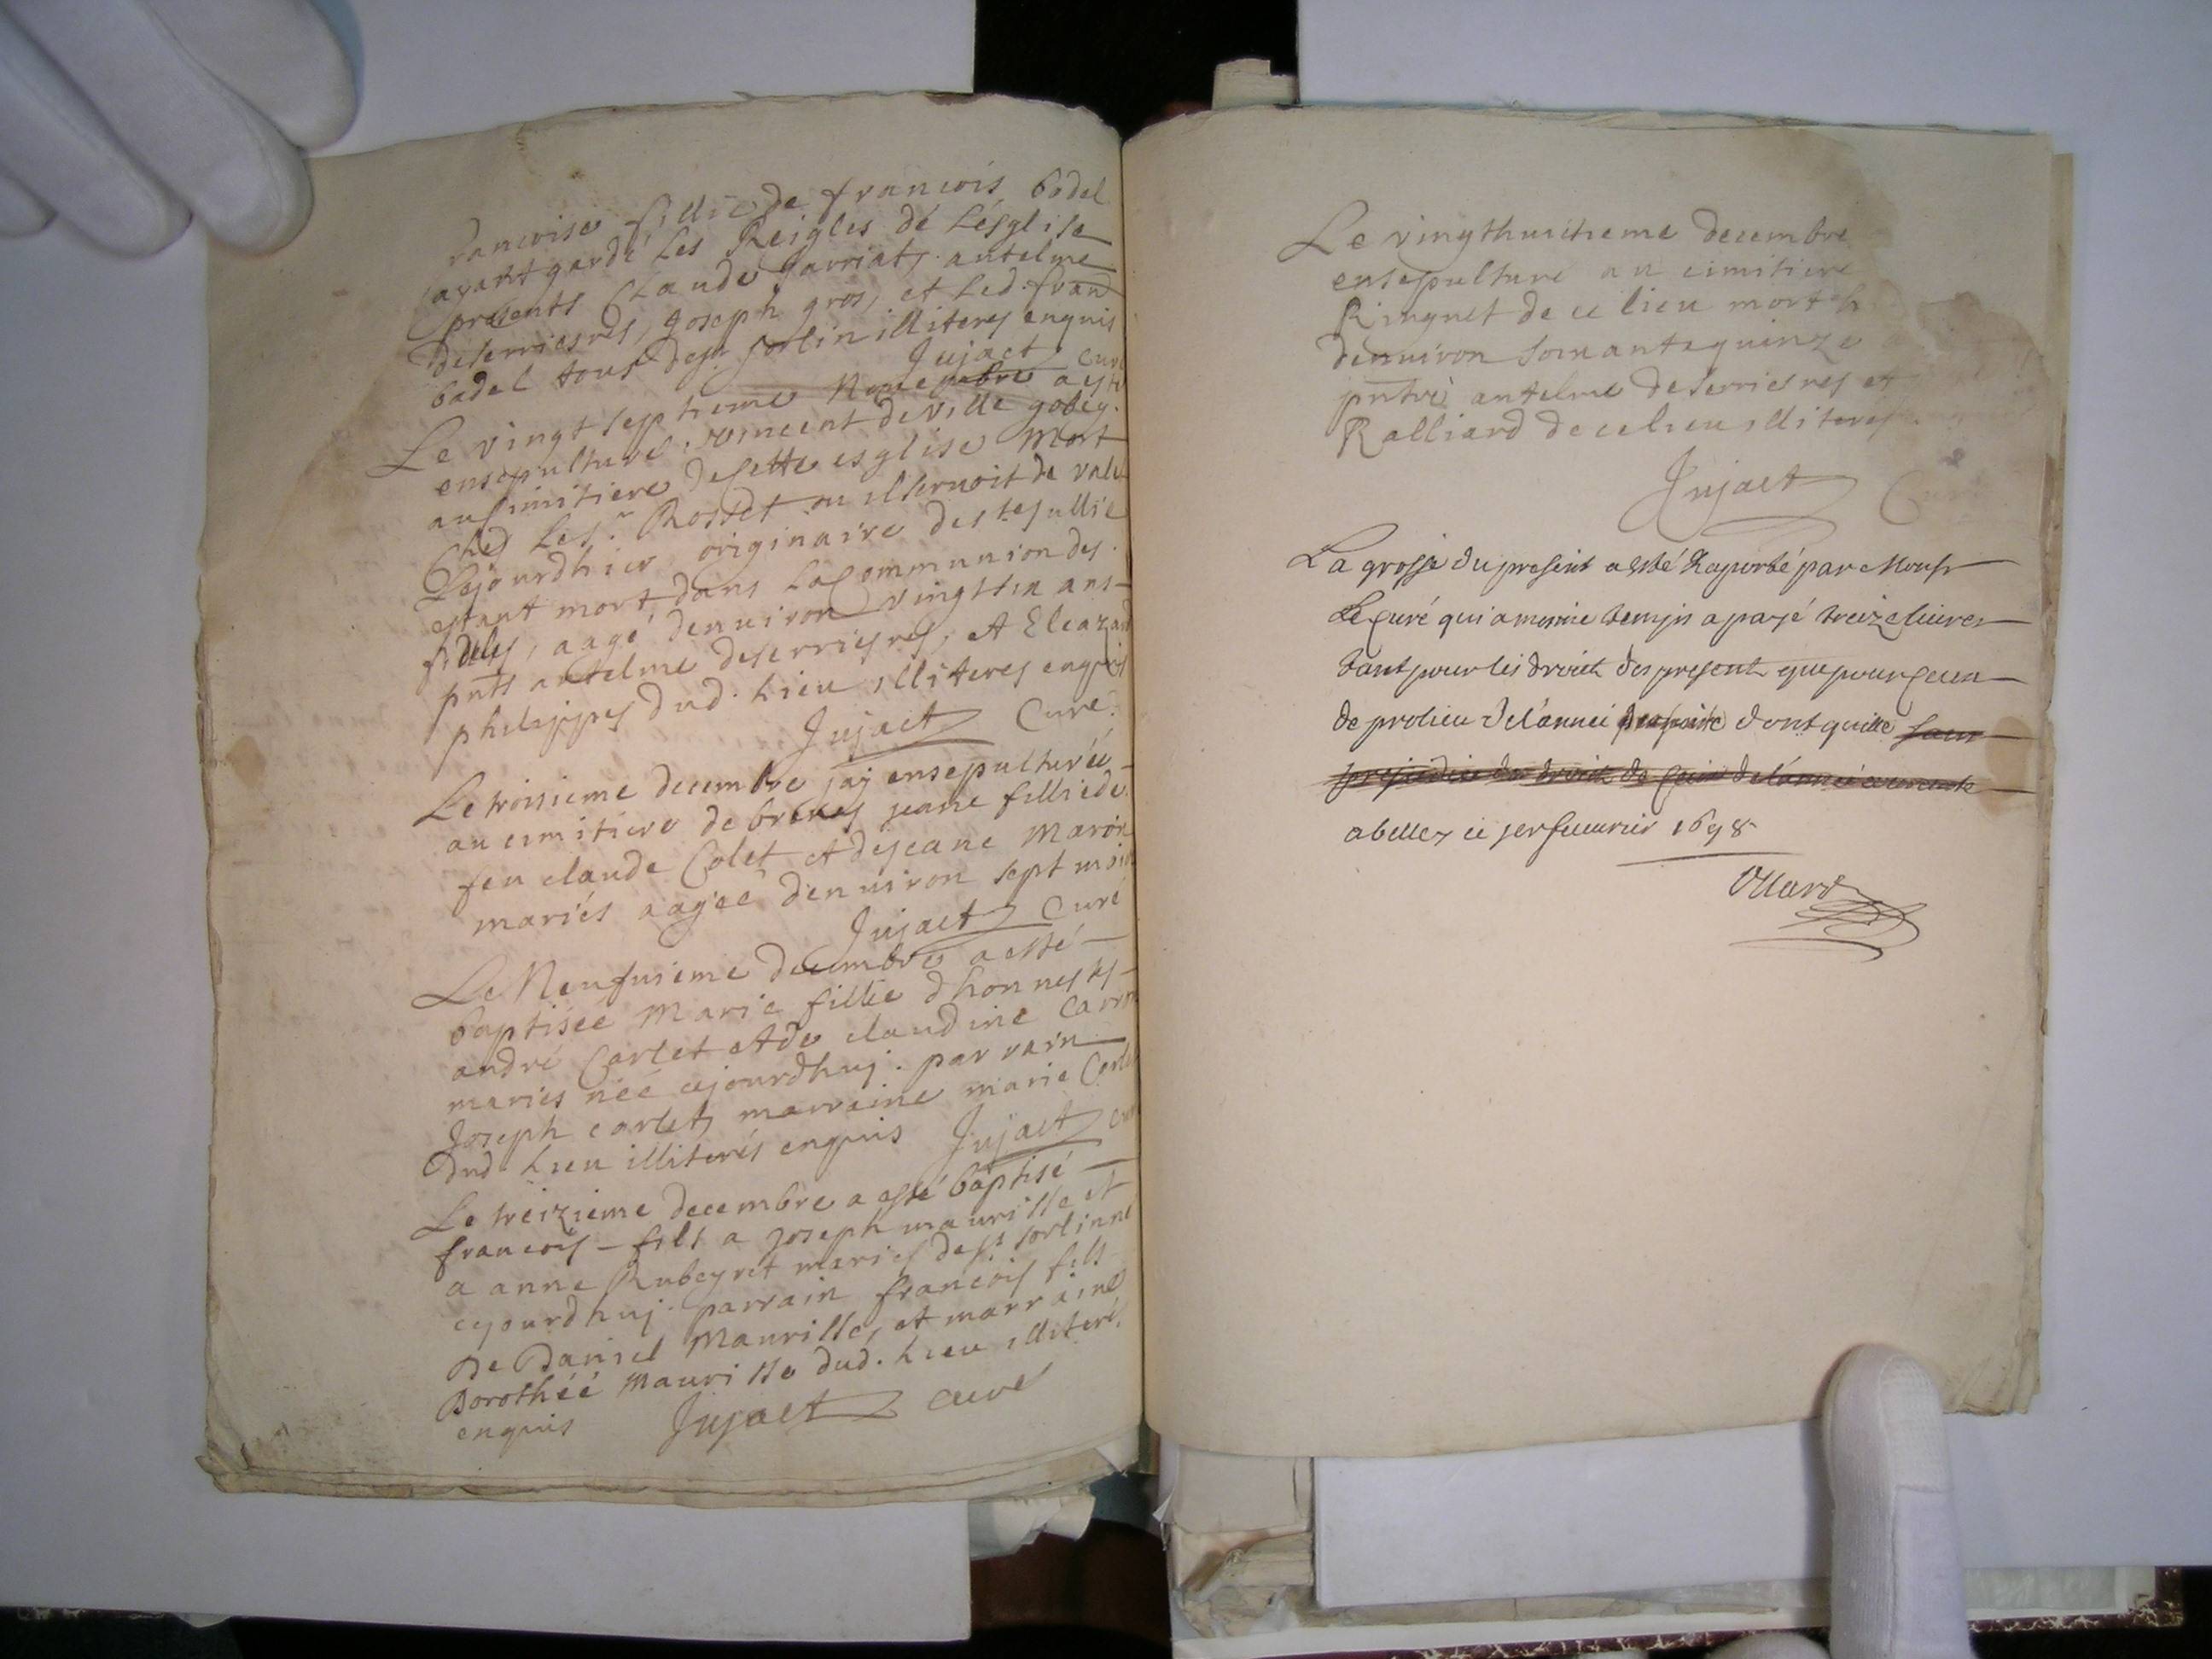 rancoise fillie de francois badel
ayant gardé Les Reigles dé Lésglise
presents Claude Garriat, antelme
deserriesres, Joseph gros, et Led. fran
badel tous de st. sorlin illiteres enquis
Jujaet Curé
Le vingt septieme Novembre a esté
ensepulturé vincent de ville
au simitiere de sette esglise Mort
ches Le sr. Rosset ou il seruoit de valet
Le jourdhier originaire
estant mort dans La Communion des
fideles, aagé denuiron vingt six ans
pnts antelme deserriesres, et Eleazard
philippes dud. Lieu illiteres enquis
Jujaet Curé
Le troisieme decembre jaj ensepulturée
au cimitiere de brenes jeane fillie de
feu claude Colet et de jeane Maron
mariés aagée denuiron sept mois
Jujaet Curé
Le Neufuieme decembre a esté
baptisée Marie fillie dhonnestes
andré Carlet et de claudine Carron
mariés néé cejourdhuj. parrain
Joseph carlet, marraine marie Carlet
dud. Lieu illiterés enquis Jujaet curé
Le treizieme decembre a esté baptisé
francois fils a joseph maurisse et
a anne Rubeyret mariés de st. sorlin né
cejourdhuj. parrain francois fils
De Daniel Maurisse, et marraine
Dorothéé Maurisse dud. Lieu illiteré
enquis Jujaet curé
Le vingthuitieme decembre
ensepulturé au cimitiere
Ringuet de ce lieu mort
denuiron soixante quinze
pnts antelme deserriesres et
Ralliard de ce lieu illiteres
Jujaet Curé
La grosse du present a esté Raporté par Monsr
Le Curé qui a mesme temps a payé treize liures
tant pour les droits des present que pour ceux
de prolieu de l'année dont quitte sans
prejudice des droits de ceux de l'année courante
a belley ce jer feurier 1698